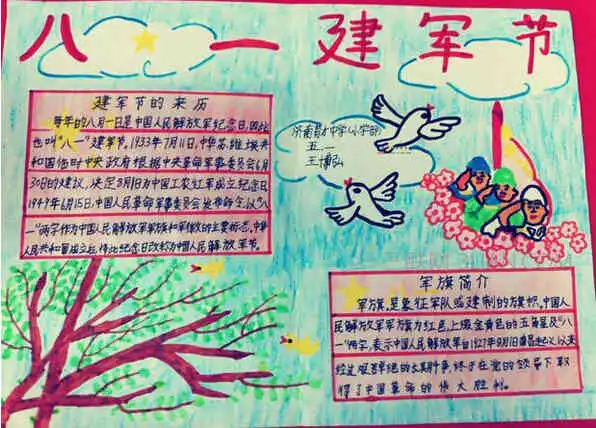 八一建军节
建军节的来历
每年的八月一日是中国人民解放军纪念日,因此
也叫"八一"建军节。1933年7月11日,中华苏维埃共
和国临时中央政府根据中央革命军事委员会6月
30日的建议,决定8月1日为中国工农红军成立纪念日。
1949年6月15日,中国人民革命军事委员会发布命令,以"八
一"两字作为中国人民解放军军旗和军徽的主要标志。中华
人民共和国成立后,将此纪念日改称为中国人民解放军建军节。
五.一
王博弘
军旗简介
军旗,是象征军队或建制的旗帜。中国人
民解放军军旗为红色,上缀金黄色的五角星及"八
一"两字,表示中国人民解放军自1927年8月1日南昌起义以来
经过艰苦卓绝的长期斗争,终于在党的领导下取
得了中国革命的伟大胜利。